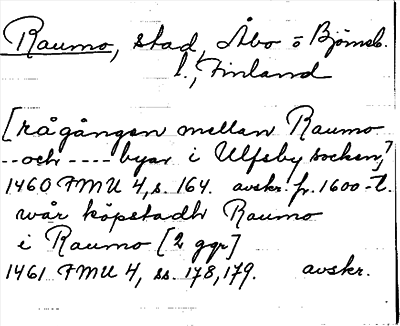 Raumo, stad, Åbo o Björneb.
l., Finland
[rågången mellan Raumo
--och ---- byar i Ulfsby socken,]
1460 FMU 4, s. 164. avskr. fr. 1600-t.
wår köpstadh Raumo
i Raumo [2 ggr]
1461 FMU 4, ss. 178, 179. avskr.